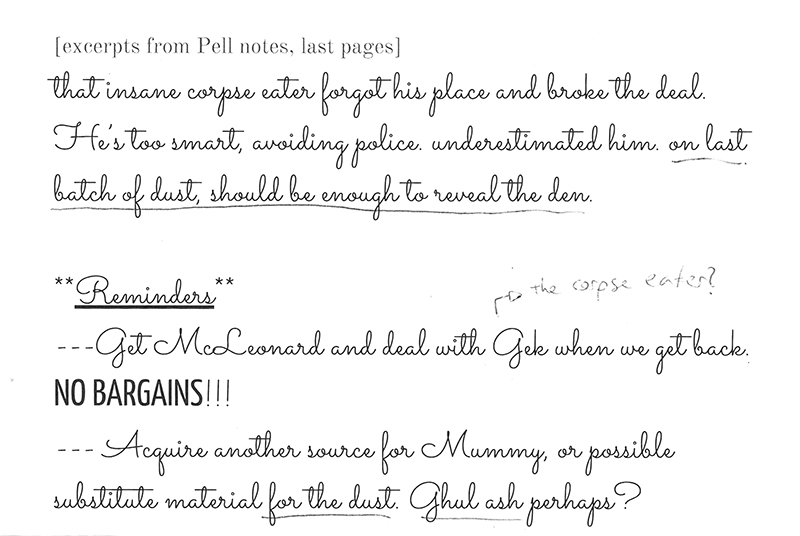 [excerpts from Pell notes, last pages]
that insane corpse eater forgot his place and broke the deal.
He's too smart, avoiding police. underestimated him. on last
batch of dust, should be enough to reveal the den.
**Reminders**
the corpse eater?
---Get McLeonard and deal with Gek when we get back.
NO BARGAINS!!!
--- Acquire another source for Mummy, or possible
substitute material for the dust. Ghul ash perhaps?